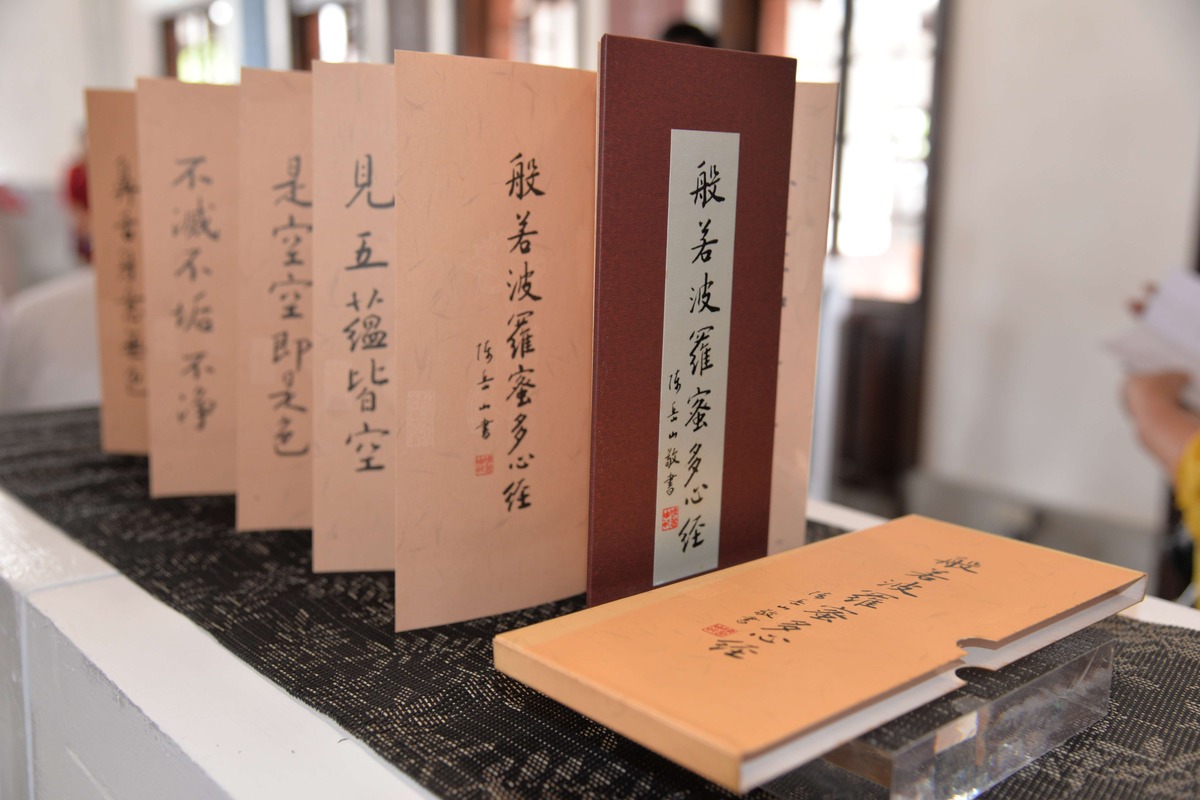 般若波羅蜜多心經
陳岳山敬書
般若波羅蜜多心經
陳岳山書
見五蘊皆空
是空空即是色
不滅不垢不淨
鼻舌身意無色
般若波羅蜜多心經
陳岳山敬書